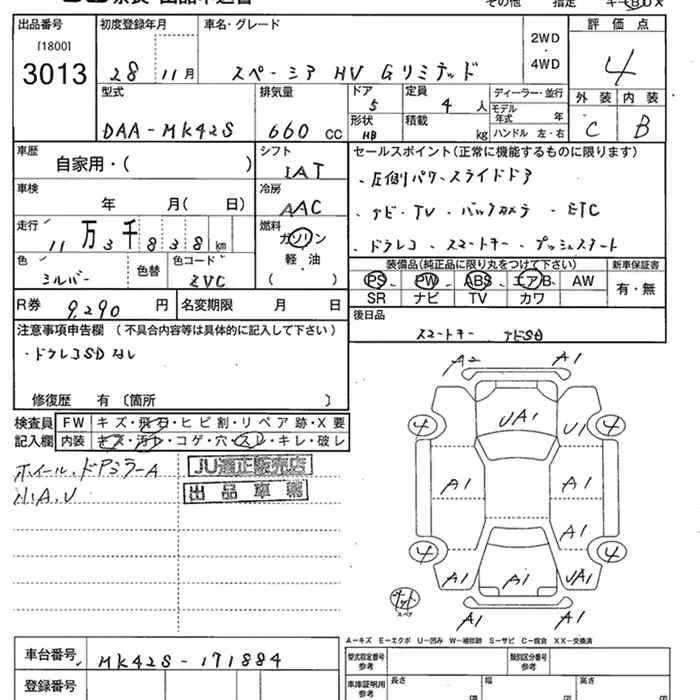 その他 指定
出品番号 初度登録年月 車名・グレード 評価点
[1800]
3013
28 11月 スペーシア HV Gリミテッド
2WD
・
4WD
4
型式 排気量 ドア 定員 ディーラー・並行 外装 内装
DAA-MK42S 660 CC 5 4 人 モデル年式 年 C B
形状 積載 ハンドル 左・右
HB kg
車歴 シフト セールスポイント(正常に機能するものに限ります)
自家用・( ) IAT
・圧側パワースライドドア
車検 冷房
年 月( 日) AAC
・ナビ・TV ・バックカメラ ・ETC
走行 燃料
11万3千838km ガソリン
・ドラレコ ・スマートキー ・プッシュスタート
軽・油
( )
色 色替 色コード
シルバー ZVC
装備品(純正品に限り丸をつけて下さい) 新車保証書
PS、 PW、 ABS、 エアB、 AW 有・無
SR ナビ TV カワ
R券 9,290 円 名変期限 月 日
後日品
スマートキー ナビSD
注意事項申告欄 (不具合内容等は具体的に記入して下さい)
・ドラレコSDなし
修復歴 有 〔箇所 〕
検査員 FW キズ・飛石・ヒビ割・リペア跡・X要
記入欄 内装 キズ・汚レ・コゲ・穴・スレ・キレ・破レ
ホイール、ドアミラーA
N.A.U
JU適正販売店
出品車輌
A2 A1
4 UA1 U1 4
A1 A1
A1
4 4
A1 A1 UA1
A1 A1
スペア
A-キズ E-エクボ U-凹み W-補修跡 S-サビ C-腐食 XX-交換済
車台番号 MK42S-171884
登録番号
型式指定番号
参考
類別区分番号
参考
車庫証明用
参考
長さ 幅 高さ